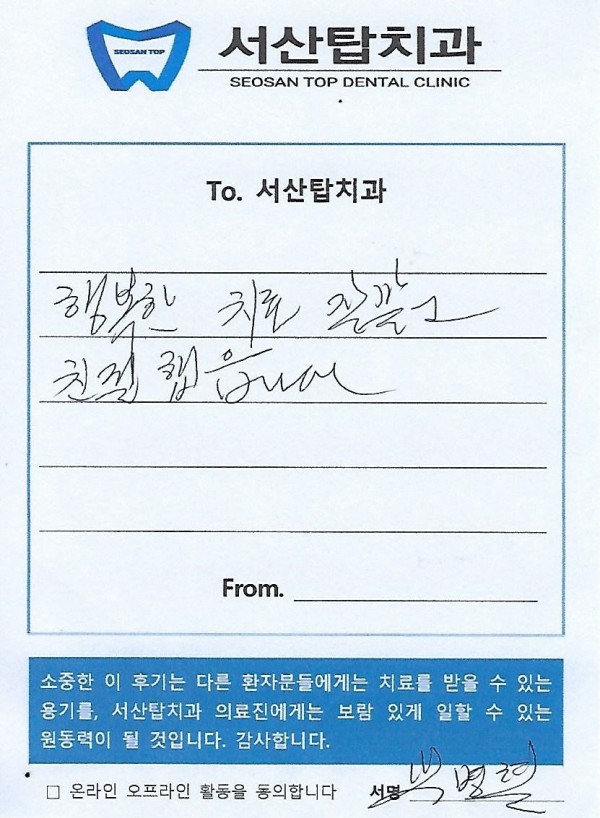 SEOSAN TOP
서산탑치과
SEOSAN TOP DENTAL CLINIC
To. 서산탑치과
행복한 치료
친절
From.
소중한 이 후기는 다른 환자분들에게는 치료를 받을 수 있는
용기를, 서산탑치과 의료진에게는 보람 있게 일할 수 있는
원동력이 될 것입니다. 감사합니다.
□ 온라인 오프라인 활동을 동의합니다 서명